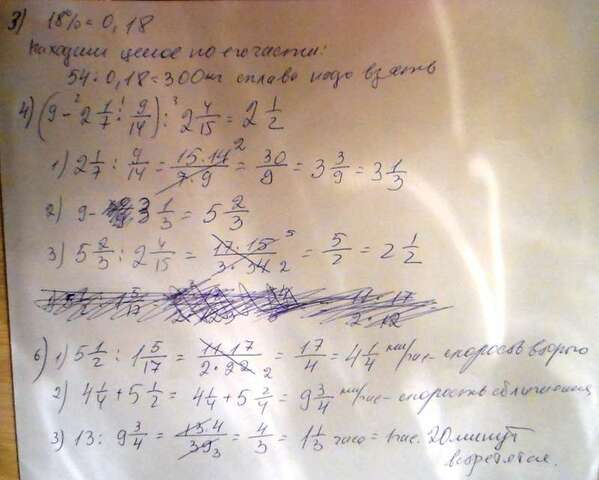 3) 18% = 0,18
Находим целое по его части:
54 : 0,18 = 300 кг сплава надо взять
4) (9 - 2 1/7 : 9/14) : 2 4/15 = 2 1/2
1) 2 1/7 : 9/14 = 15·14/7·9 = 30/9 = 3 3/9 = 3 1/3
2) 9 - 3 1/3 = 5 2/3
3) 5 2/3 : 2 4/15 = 17·15/3·34 = 5/2 = 2 1/2
6) 1) 5 1/2 : 1 5/17 = 11·17/2·22 = 17/4 = 4 1/4 км/час - скорость второго
2) 4 1/4 + 5 1/2 = 4 1/4 + 5 2/4 = 9 3/4 км/час - скорость сближения
3) 13 : 9 3/4 = 13·4/39 = 4/3 = 1 1/3 часа = 1 час. 20 минут
встретятся.